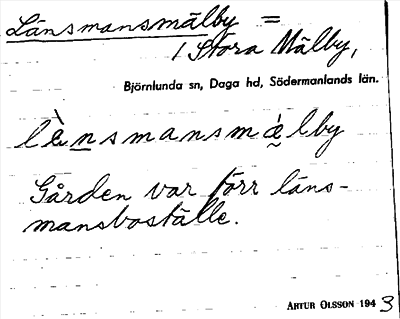 Länsmansmälby =
/ Stora Mälby,
Björnlunda sn, Daga hd, Södermanlands län.
lὲnsmansmǽlby
Gården var förr läns-
mansboställe.
ARTUR OLSSON 1943